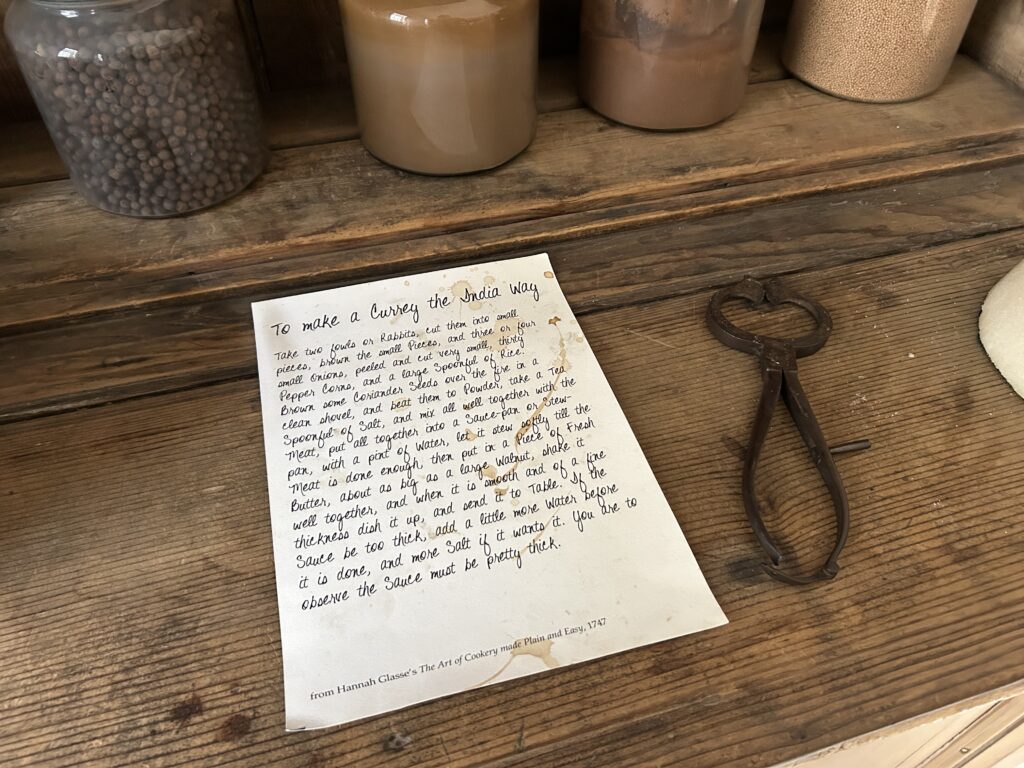 To make a Currey the India Way
Take two fowls or Rabbits, cut them into small
pieces, brown the small Pieces, and three or four
small Onions, peeled and cut very small, thirty
Pepper Corns, and a large Spoonful of Rice.
Brown some Coriander Seeds over the fire in a
clean shovel, and beat them to Powder, take a Tea
Spoonful of Salt, and mix all well together with the
Meat, put all together into a Sauce-pan or Stew-
pan, with a pint of Water, let it stew softly till the
Meat is done enough, then put in a Piece of Fresh
Butter, about as big as a large Walnut, shake it
well together, and when it is smooth and of a fine
thickness dish it up, and send it to Table. If the
Sauce be too thick, add a little more Water before
it is done, and more Salt if it wants it. You are to
observe the Sauce must be pretty thick.
from Hannah Glasse's The Art of Cookery made Plain and Easy, 1747